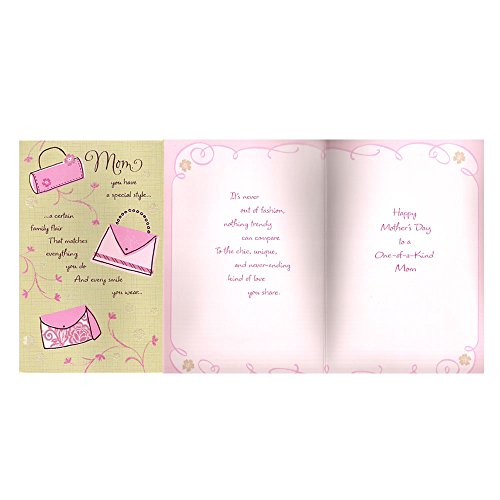 Mom
you have
a special style...
...a certain
family flair
That matches
everything
you do
And every smile
you wear...
It's never
out of fashion,
nothing trendy
can compare
To the chic, unique,
and never-ending
kind of love
you share.
Happy
Mother's Day
to a
One-of-a-Kind
Mom